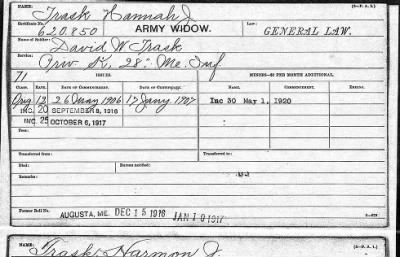 (3-P. A. I.)
NAME: Trask Hannah J.
Certificate No. 620.850 ARMY WIDOW. LAW: GENERAL LAW.
Name of Soldier: David W Trask
Service: Priv K. 28" Me. Inf
71 ISSUES. MINORS—$2 PER MONTH ADDITIONAL.
CLASS. RATE. DATE OF COMMENCEMENT. DATE OF CERTIFICATE. NAME. COMMENCEMENT. ENDING.
Orig 12 26 May 1906 17 Jany 1907 Inc 30 May 1, 1920
INC. 20 SEPTEMBER 8, 1916
INC. 25 OCTOBER 6, 1917
Transferred from: Transferred to:
Died: Bureau notified:
Remarks:
Former Roll No. AUGUSTA, ME. DEC 15 1916 JAN 10 1917
NAME: Trask, Harmon J. (3-P. A. I.)